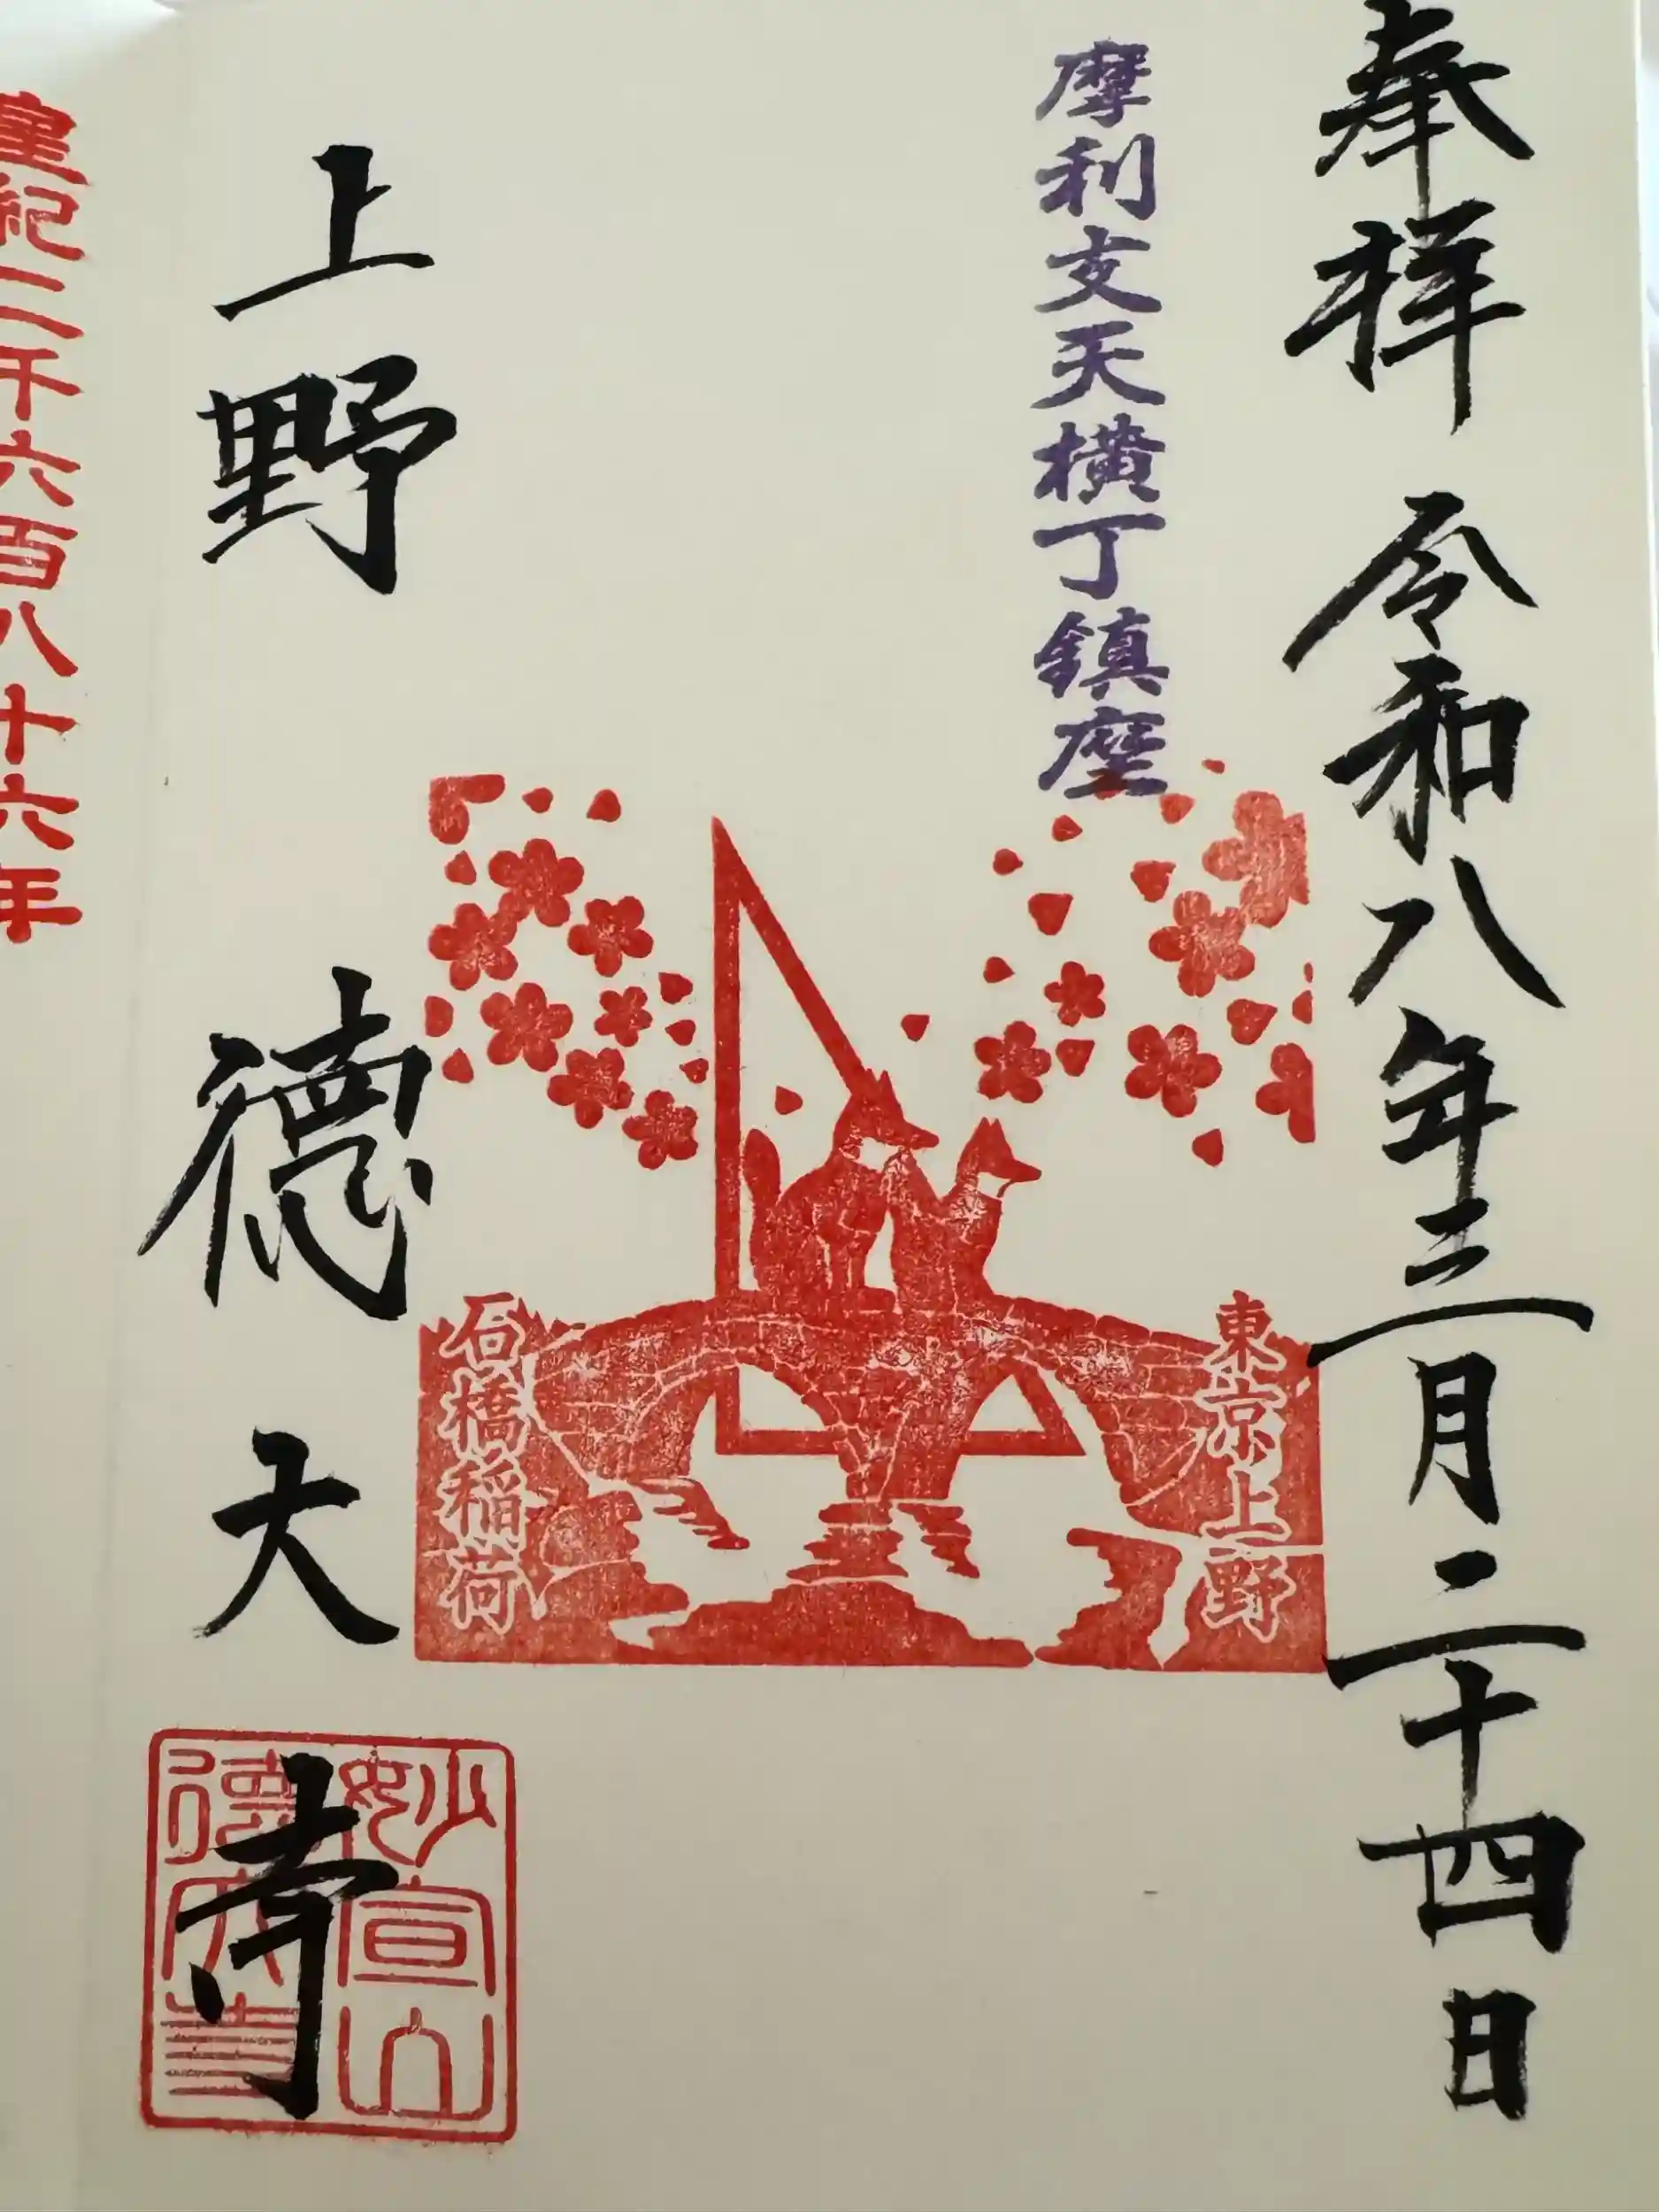 奉拝 令和八年三月二十四日
摩利支天横丁鎮座
東京上野
石橋稲荷
上野 徳大寺
妙宣山
徳大寺
皇紀二千六百八十六年